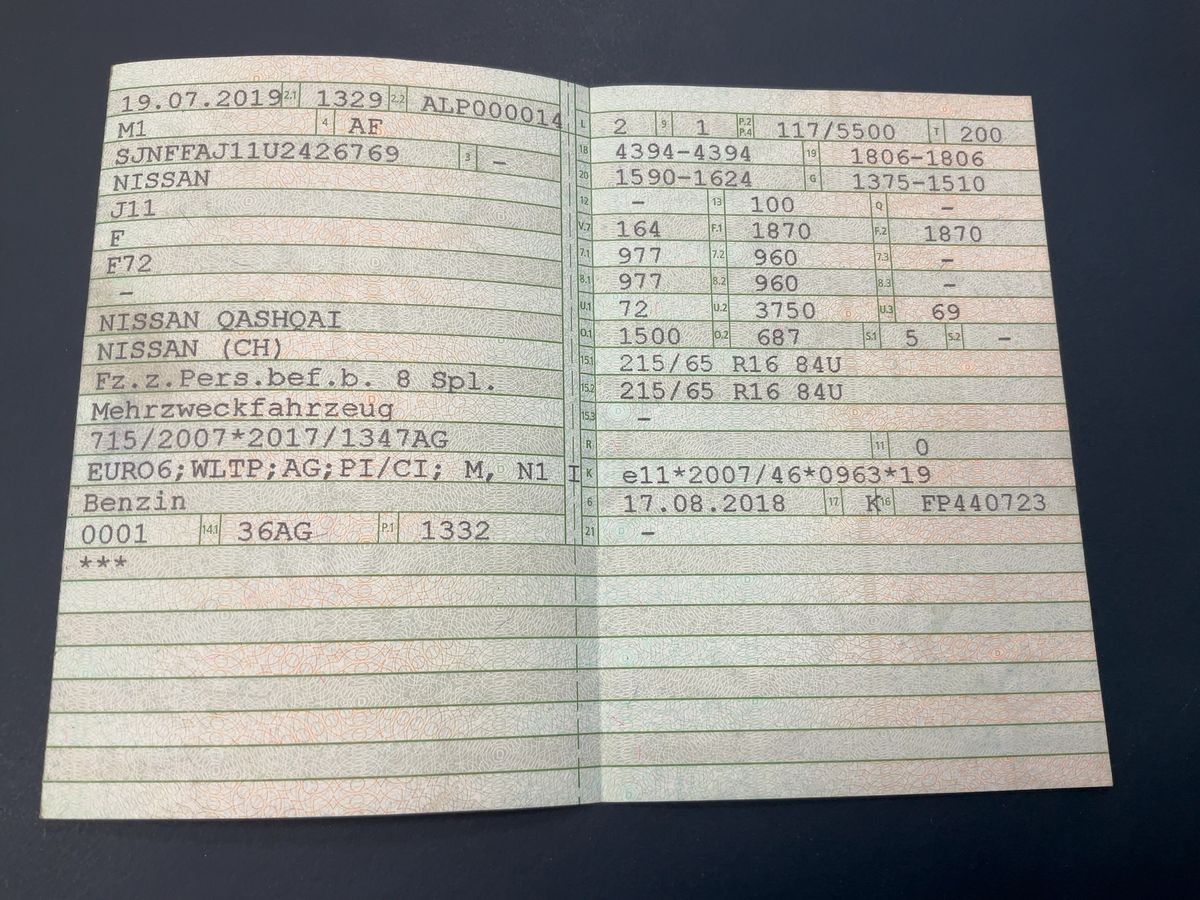 19.07.2019 2.1 1329 2.2 ALP000014
M1 4 AF
SJNFFAJ11U2426769 3 –
NISSAN
J11
F
F72
–
NISSAN QASHQAI
NISSAN (CH)
Fz.z.Pers.bef.b. 8 Spl.
Mehrzweckfahrzeug
715/2007*2017/1347AG
EURO6;WLTP;AG;PI/CI; M, N1 I
Benzin
0001 14.1 36AG P.1 1332
***
L 2 9 1 P.2 P.4 117/5500 T 200
18 4394–4394 19 1806–1806
20 1590–1624 G 1375–1510
12 – 13 100 Q –
V.7 164 F.1 1870 F.2 1870
7.1 977 7.2 960 7.3 –
8.1 977 8.2 960 8.3 –
U.1 72 U.2 3750 U.3 69
O.1 1500 O.2 687 S.1 5 S.2 –
15.1 215/65 R16 84U
15.2 215/65 R16 84U
15.3 –
R 11 0
K e11*2007/46*0963*19
6 17.08.2018 17 K 16 FP440723
21 –